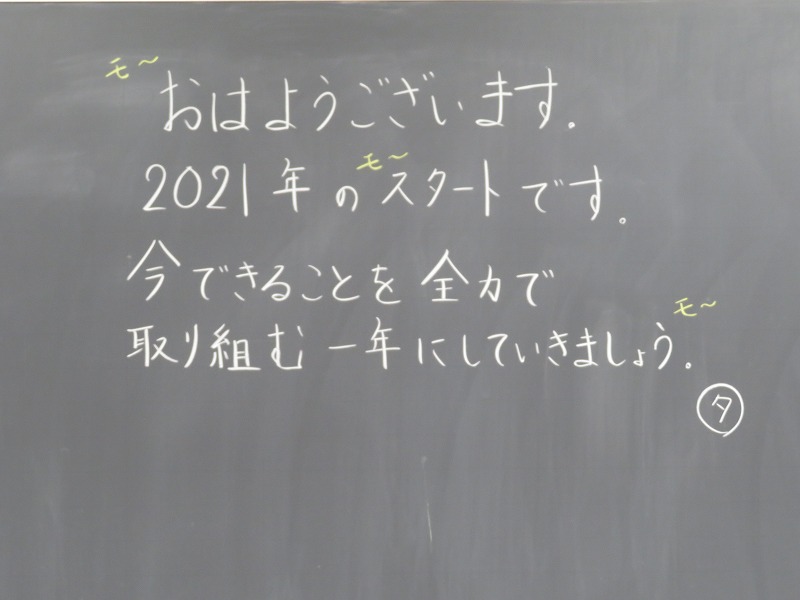 モ〜
おはようございます。
モ〜
2021年のスタートです。
今できることを全力で
モ〜
取り組む一年にしていきましょう。
タ